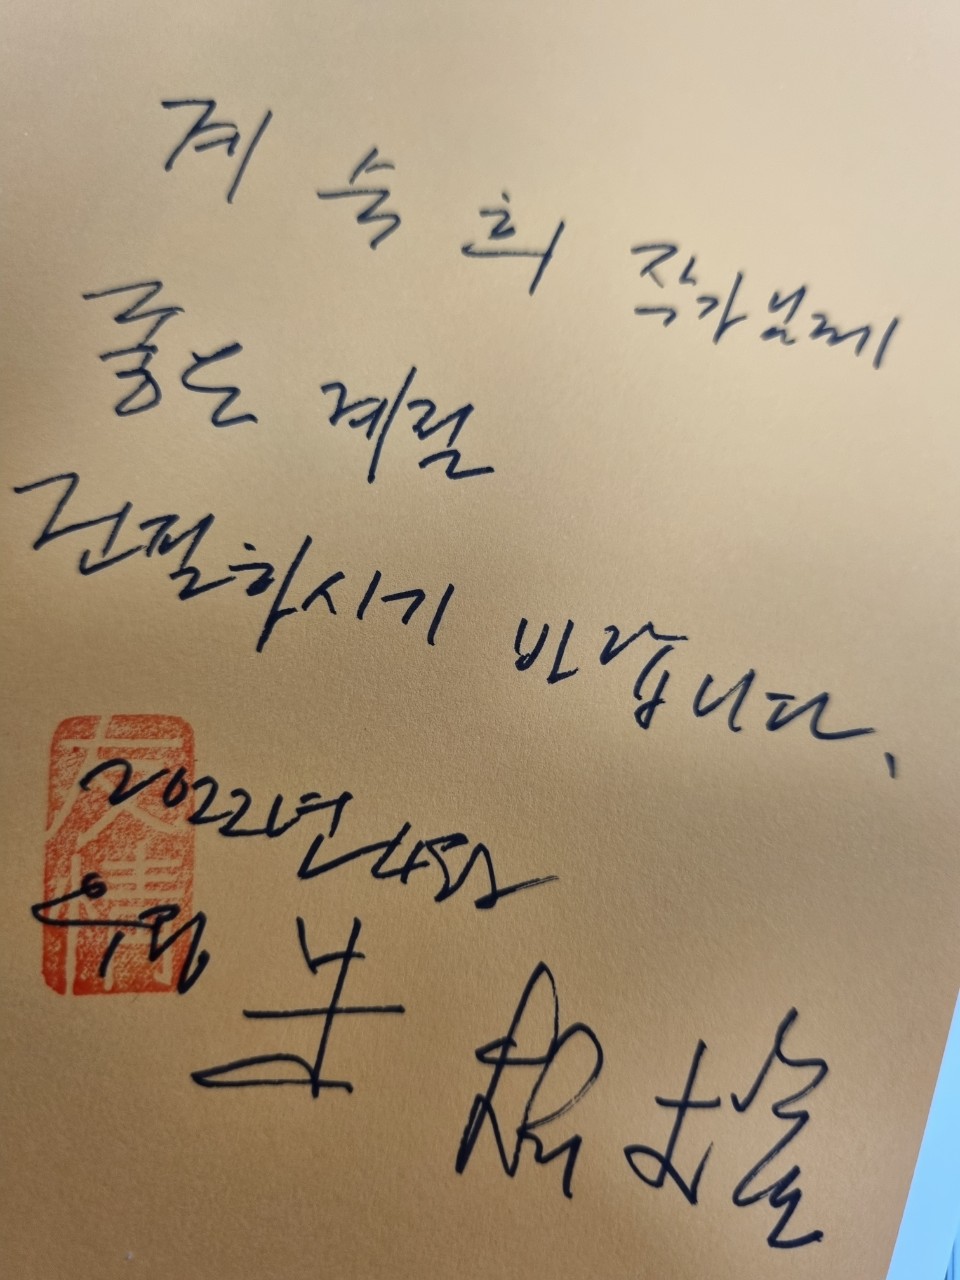 계 숙 희 작가님께
좋은 계절
건필하시기 바랍니다.
2022년 4월
友情